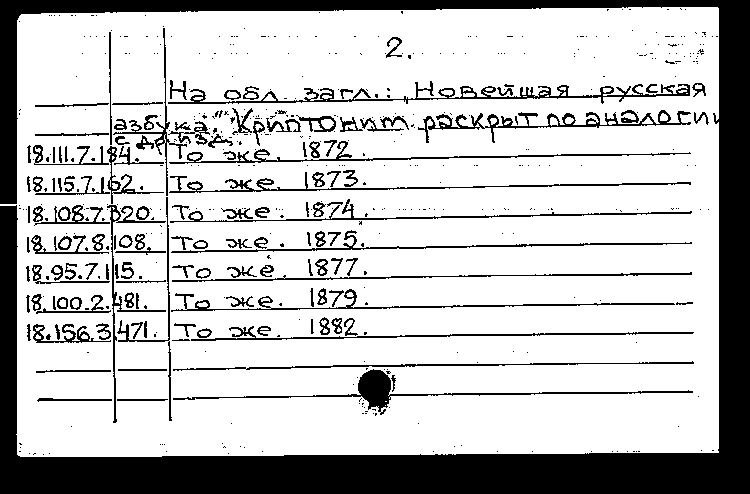 2.
На обл. загл.: „Новейшая русская
азбука." Криптоним раскрыт по аналогии
с др. изд.
18.111.7.184. То же. 1872.
18.115.7.162. То же. 1873.
18.108.7.320. То же. 1874.
18.107.8.108. То же. 1875.
18.95.7.115. То же. 1877.
18.100.2.481. То же. 1879.
18.156.3.471. То же. 1882.